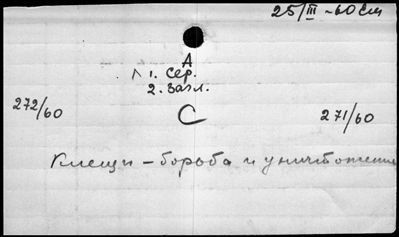 25/III -60 см
А
1. Сер.
2. Загл.
272/60
С
271/60
Клещи - борьба и уничтожение